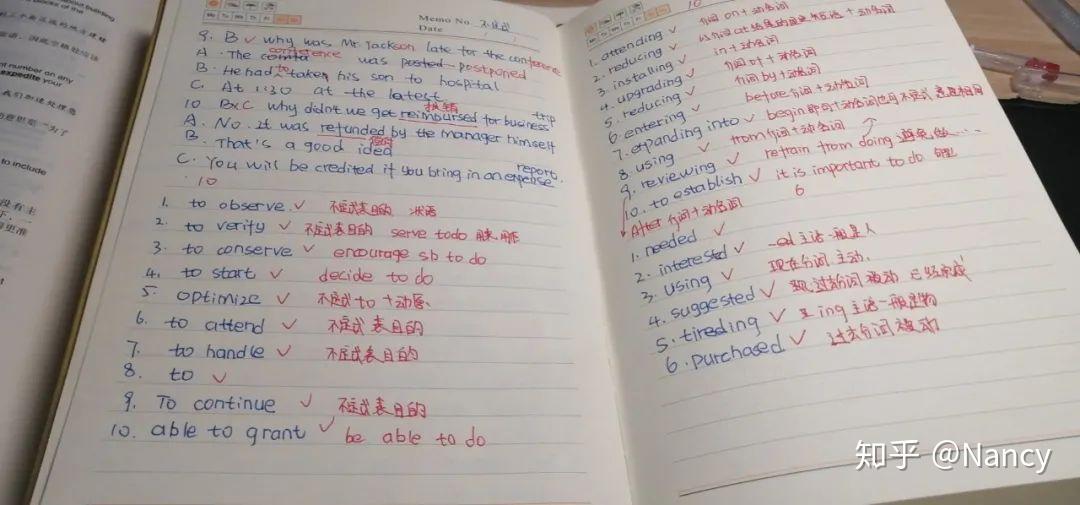 about building
blocks of the
number on any
expedite your
to include
Memo No. 不定式
Date
9. B ✓ why was Mr. Jackson late for the conference
A. The conference was posted postponed
B. He had to taken his son to hospital
C. At 1:30 at the latest
10 B×C why didn't we get reimbursed for business trip
报销
A. No. It was refunded by the manager himself
B. That's a good idea
C. You will be credited if you bring in an expense report.
10
1. to observe ✓ 不定式表目的 状语
2. to verify ✓ 不定式表目的 serve to do 用来、用作
3. to conserve ✓ encourage sb to do
4. to start ✓ decide to do
5. optimize ✓ 不定式 to + 动原
6. to attend ✓ 不定式表目的
7. to handle ✓ 不定式表目的
8. to ✓
9. To continue ✓ 不定式表目的
10. able to grant ✓ be able to do
10
1. attending ✓ 介词 on + 动名词
2. reducing ✓ 介词 at + 动名词
3. installing ✓ in + 动名词
4. upgrading ✓ 介词 of + 动名词
5. reducing ✓ 介词 by + 动名词
6. entering ✓ before 介词 + 动名词
7. expanding into ✓ begin 即可 + 动名词也可不定式 意思相同
8. using ✓ from 介词 + 动名词
9. reviewing ✓ refrain from doing 避免做……
10. to establish ✓ it is important to do 句型
After 介词 + 动名词
6
1. needed ✓
2. interested ✓ -ed 主语一般是人
3. using ✓ 现在分词 主动.
4. suggested ✓ 过去分词 被动 已经完成
5. tireding ✓ ing 主语一般是物
6. purchased ✓ 过去分词 被动
知乎 @Nancy